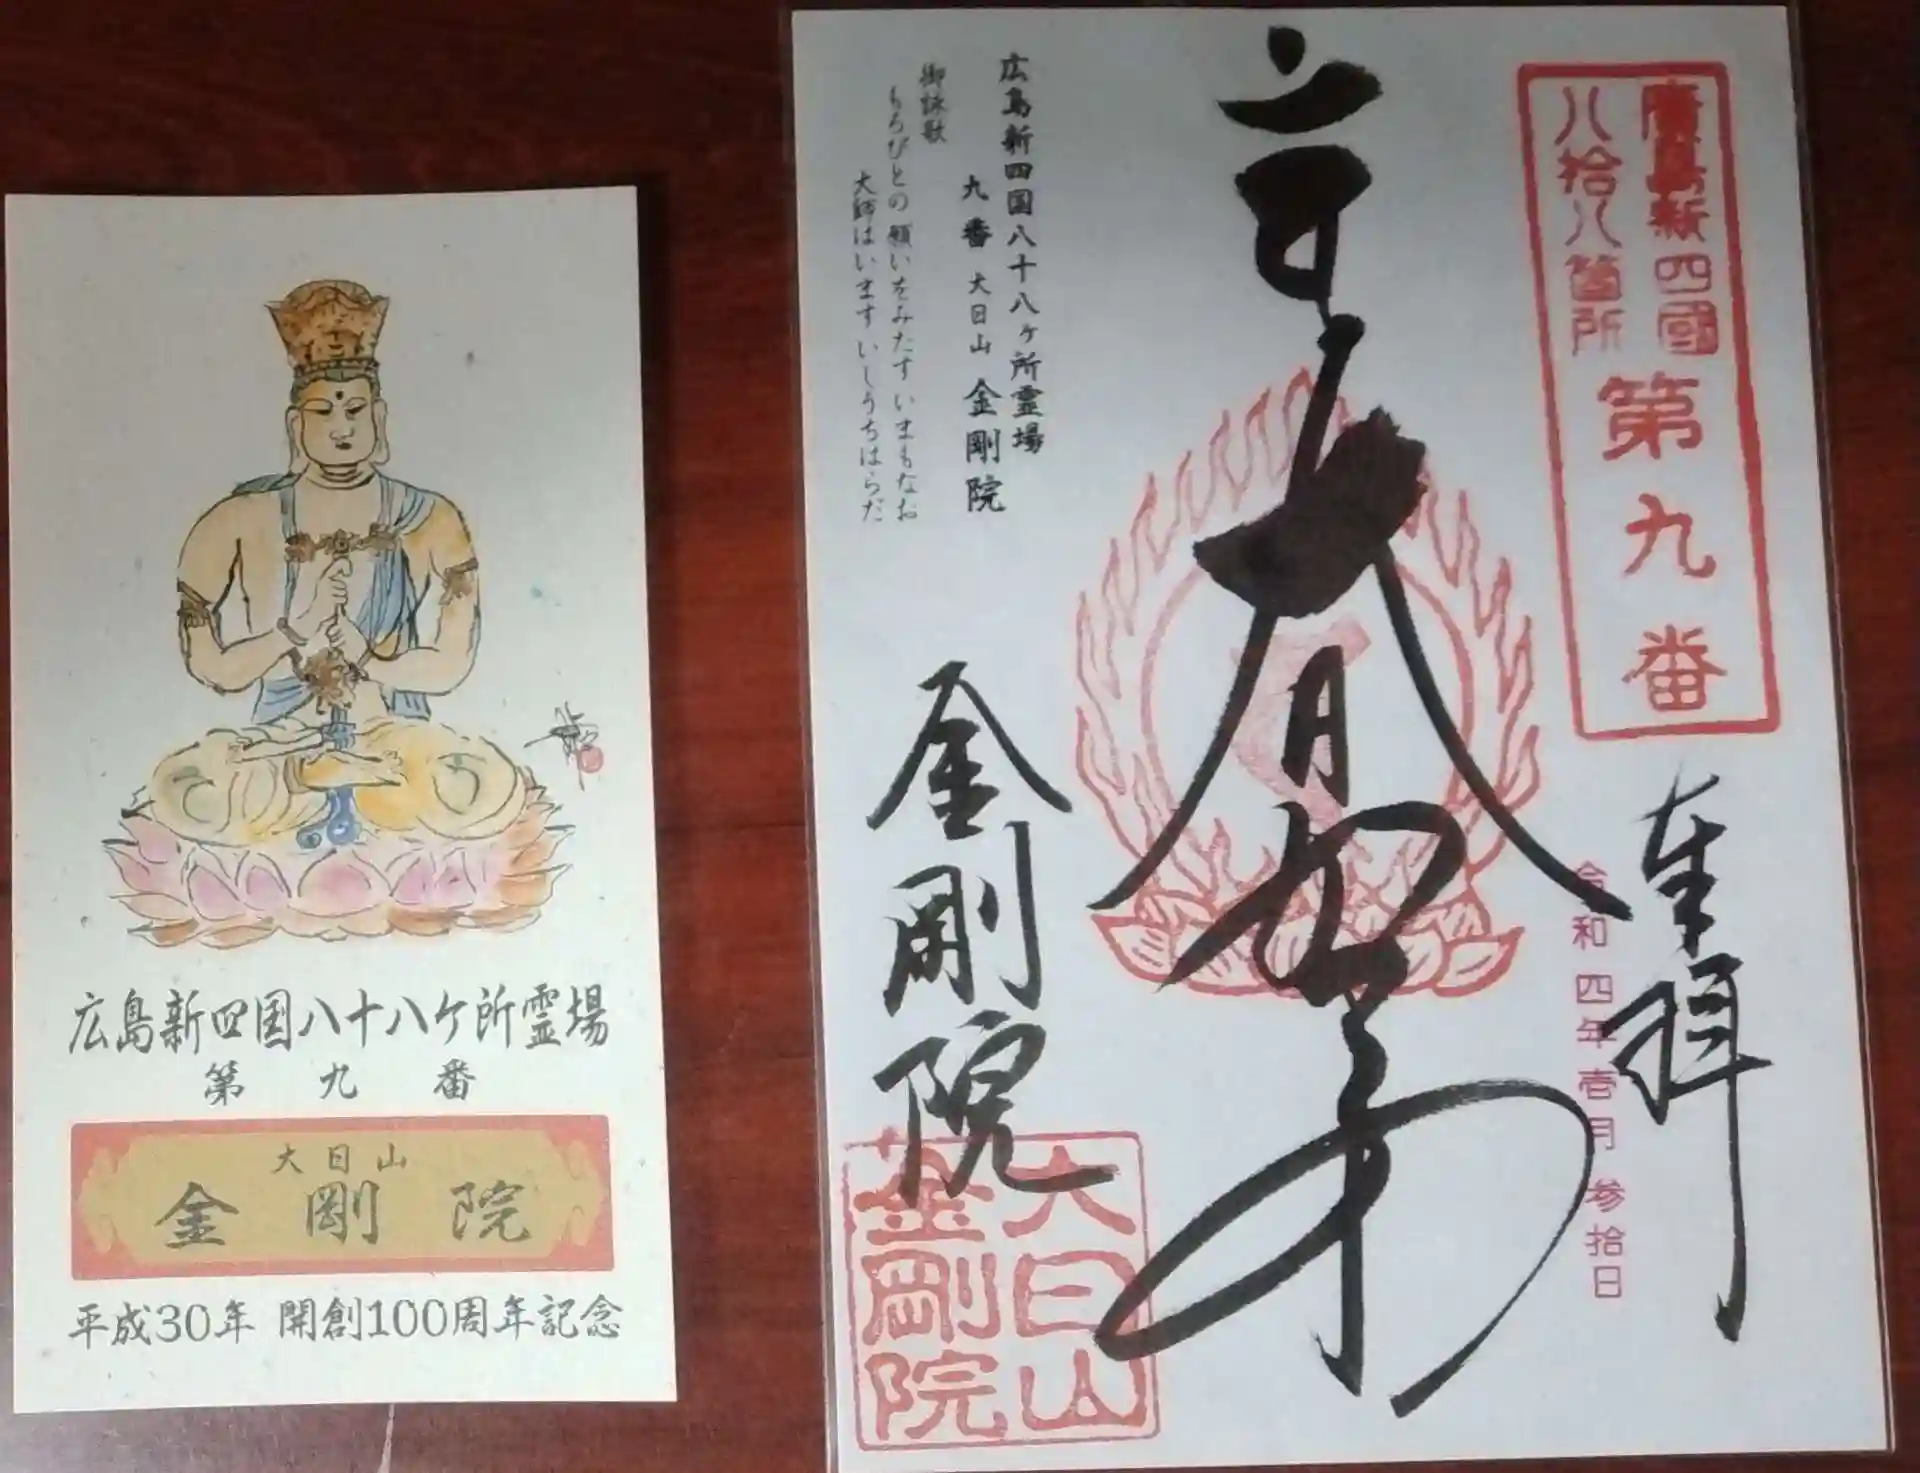 広島新四国八十八ケ所霊場
第九番
大日山
金剛院
平成30年 開創100周年記念
廣島新四國
八拾八箇所
第九番
奉拝
令和四年壱月参拾日
金剛院
大日山
金剛院
広島新四国八十八ヶ所霊場
九番 大日山 金剛院
御詠歌
もろびとの 願いをみたす いまもなお
大師はいます いしうちはらだ